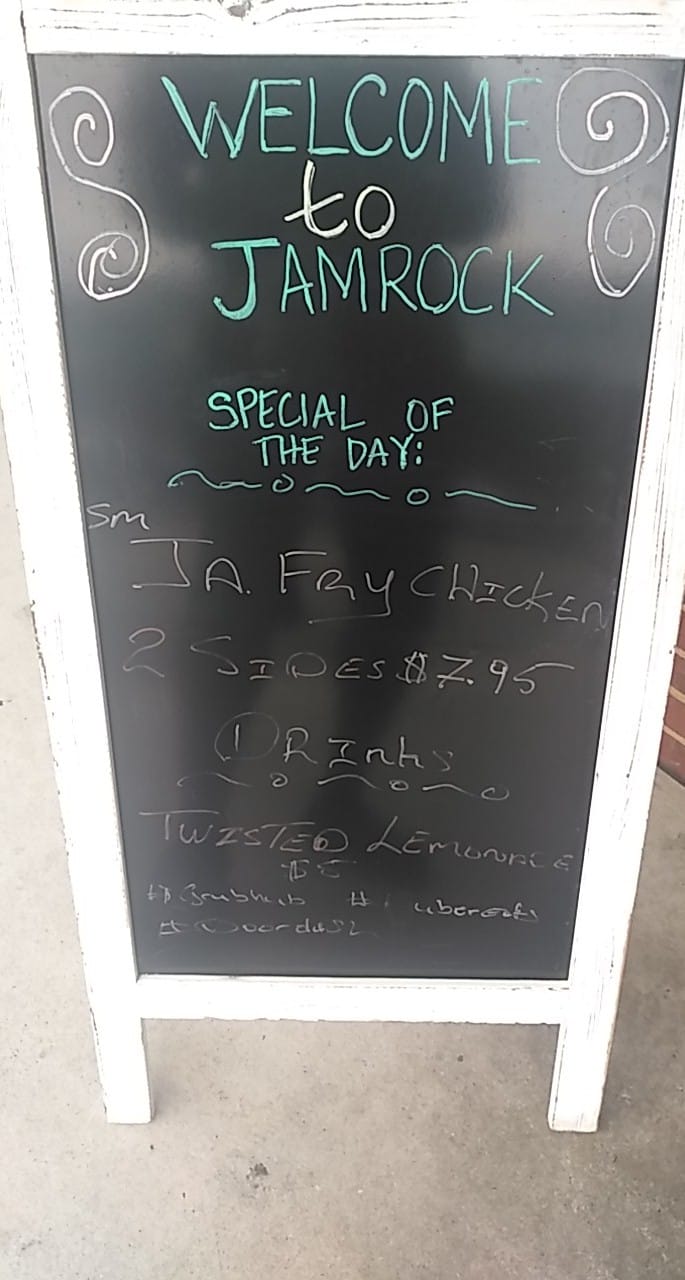 WELCOME
to
JAMROCK
SPECIAL OF
THE DAY:
Sm
JA. FRY CHICKEN
2 SIDES $7.95
DRINKS
TWISTED LEMONADE
$5
#Grubhub # ubereats
#Doordash